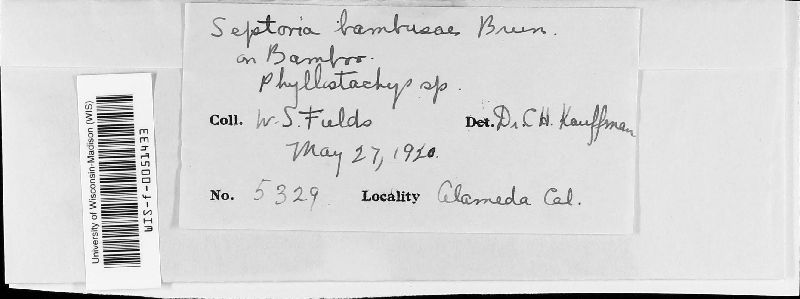 Septoria bambusae Brun.
on Bamboo.
Phyllostachys sp.
Coll. W. S. Fields Det. Dr C H. Kauffman
May 27, 1920.
No. 5329 Locality Alameda Cal.
University of Wisconsin-Madison (WIS)
WIS-f-0051433